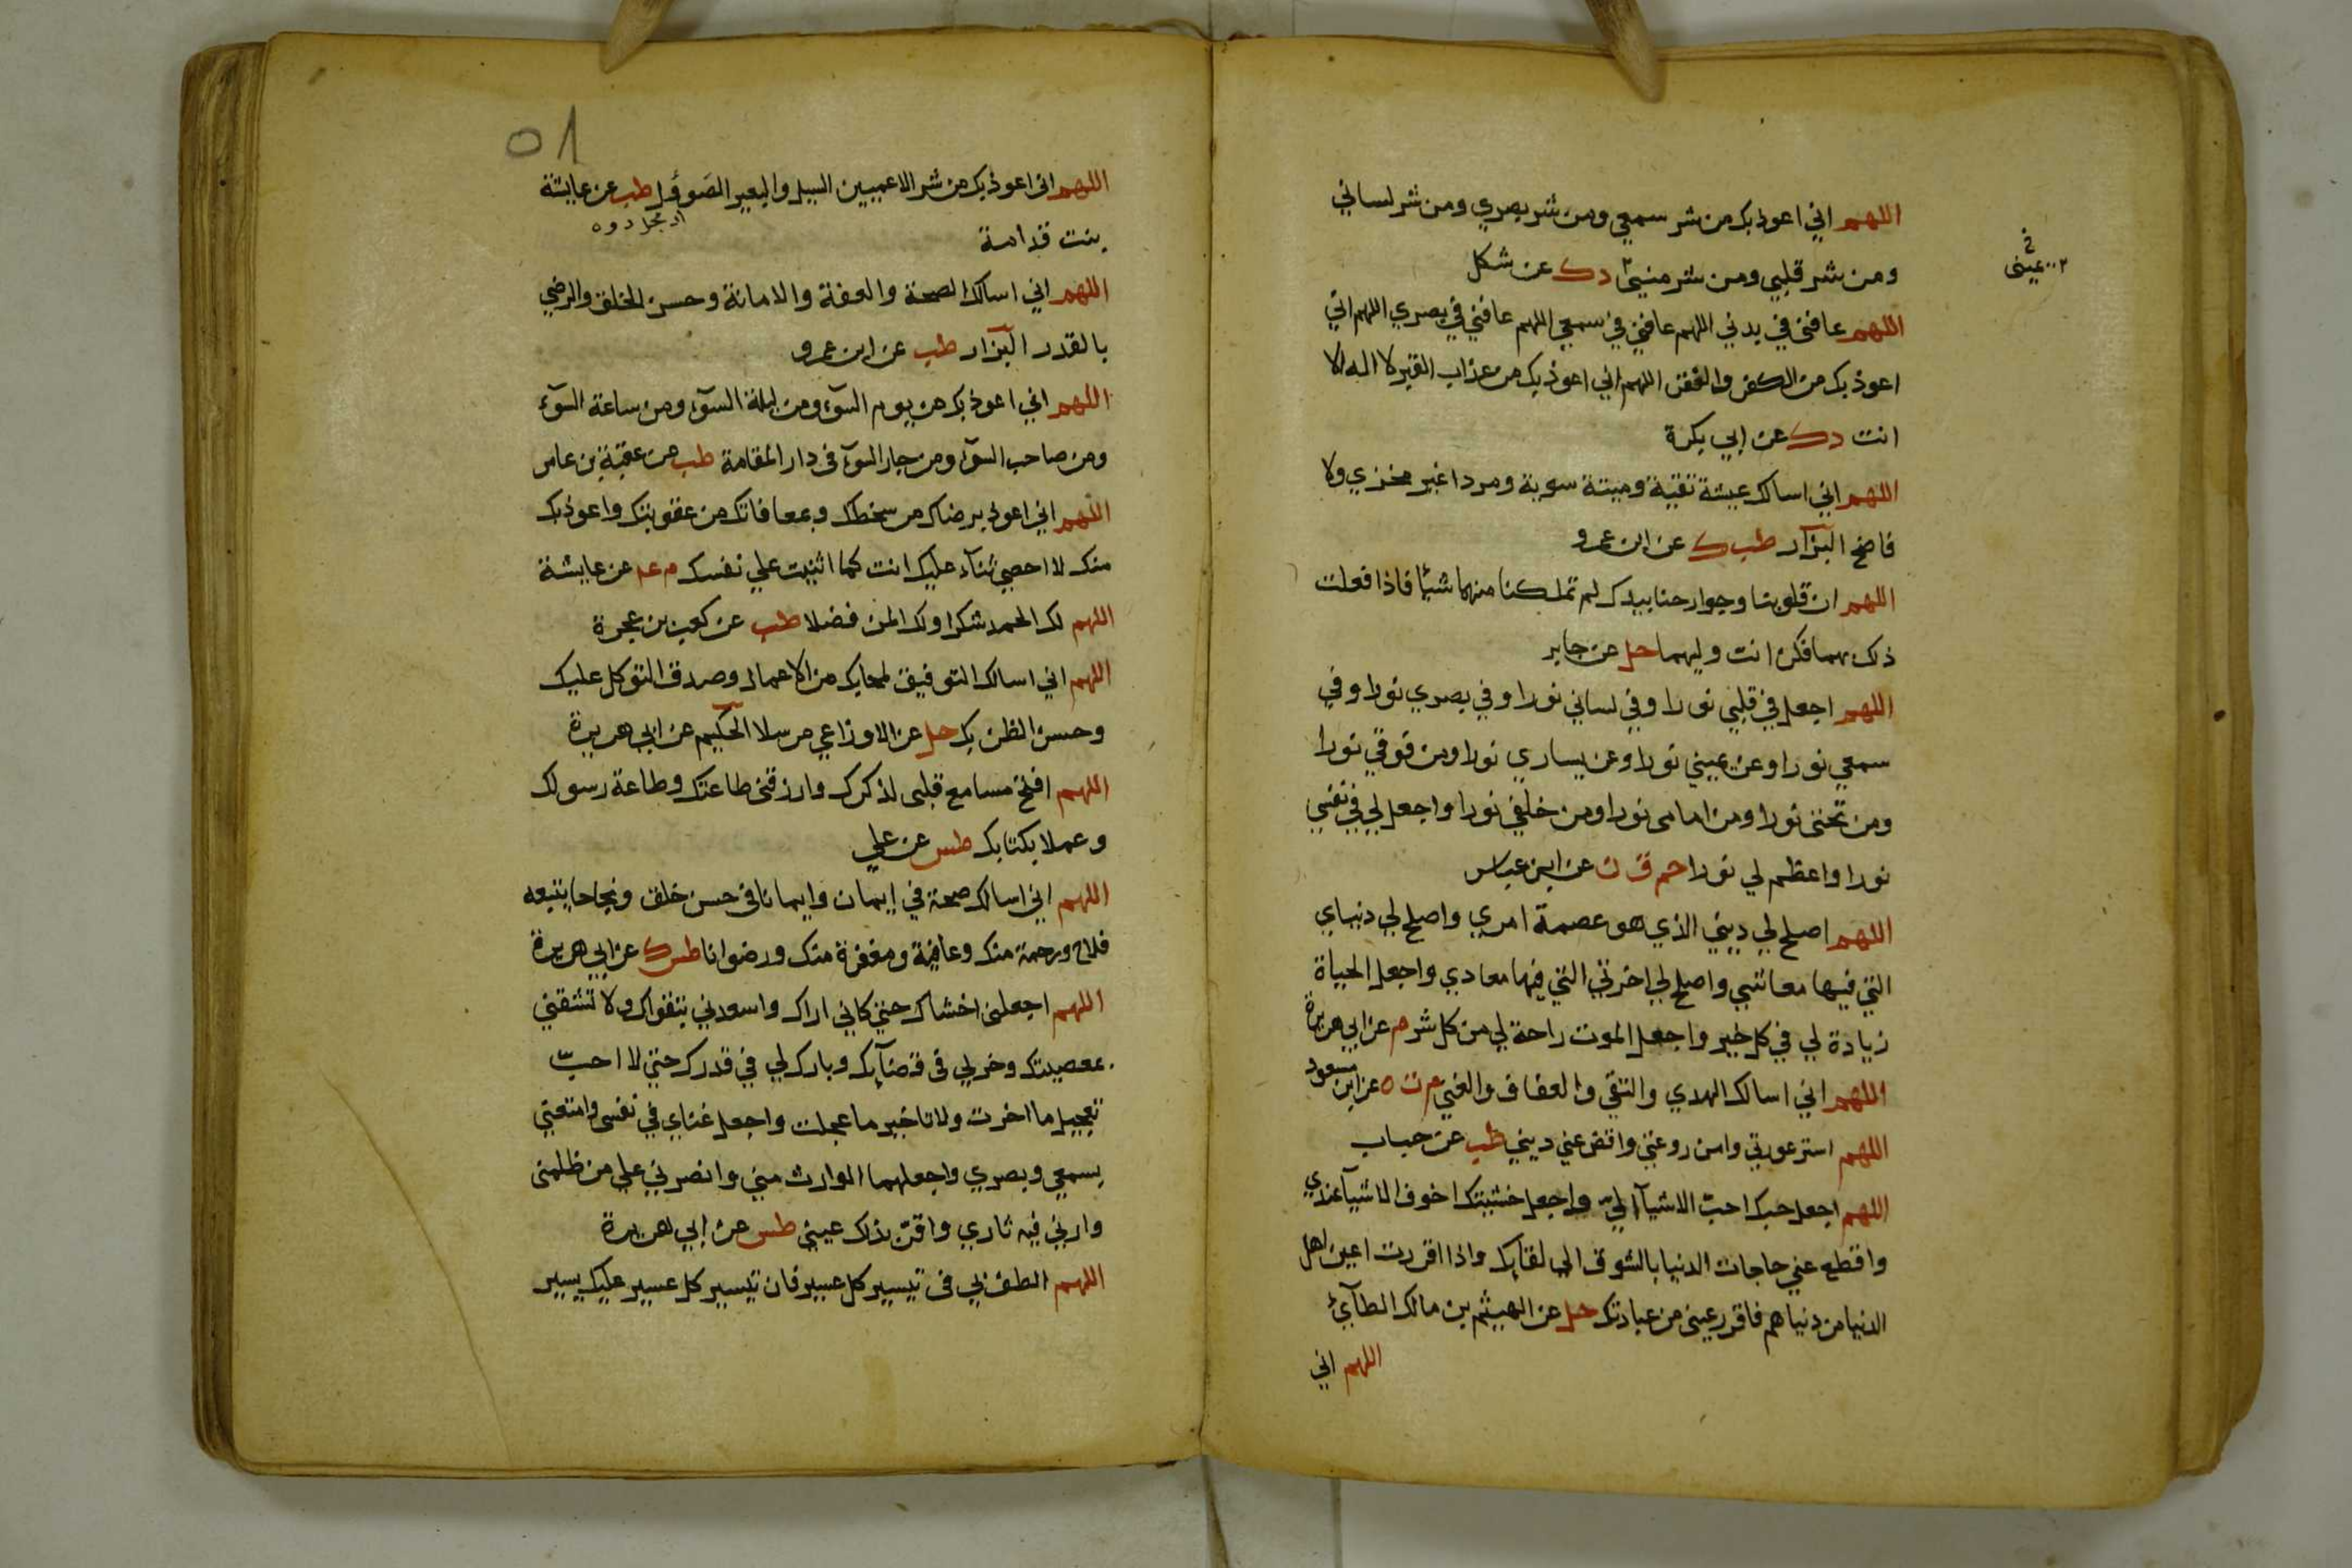 اللهم اني اعوذ بك من شر سمعي ومن شر بصري ومن شر لساني
ومن شر قلبي ومن شر منيي دك عن شكل
اللهم عافني في بدني اللهم عافني في سمعي اللهم عافني في بصري اللهم اني
اعوذ بك من الكفر والفقر اللهم اني اعوذ بك من عذاب القبر لا اله الا
انت دك عن ابي بكرة
اللهم اني اسالك عيشة نقية وميتة سوية ومردا غير مخزي ولا
فاضح البزار طب ك عن ابن عمرو
اللهم ان قلوبنا وجوارحنا بيدك لم تملكنا منهما شيئا فاذا فعلت
ذلك بهما فكن انت وليهما حل عن جابر
اللهم اجعل في قلبي نورا وفي لساني نورا وفي بصري نورا وفي
سمعي نورا وعن يميني نورا وعن يساري نورا ومن فوقي نورا
ومن تحتي نورا ومن امامى نورا ومن خلفي نورا واجعل لي في نفسي
نورا واعظم لي نورا حم ق ن عن ابن عباس
اللهم اصلح لي ديني الذي هو عصمة امري واصلح لي دنياي
التي فيها معاشي واصلح لي اخرتي التي فيها معادي واجعل الحياة
زيادة لي في كل خير واجعل الموت راحة لي من كل شر م عن ابي هريرة
اللهم اني اسالك الهدي والتقي والعفاف والغني م ت ه عن ابن مسعود
اللهم استر عورتي وامن روعتي واقض عني ديني طب عن خباب
اللهم اجعل حبك احب الاشيآ اليّ واجعل خشيتك اخوف الاشيآ عندي
واقطع عني حاجات الدنيا بالشوق الي لقايك واذا اقررت اعين اهل
الدنيا من دنياهم فاقرر عينى من عبادتك حل عن الهيثم بن مالك الطآئ
اللهم اني
٥١
اللهم انى اعوذ بك من شر الاعميين السيل والبعير الصَوُول طب عن عايشة
بنت قدامة
اللهم اني اسالك الصحة والعفة والامانة وحسن الخلق والرضي
بالقدر البزار طب عن ابن عمرو
اللهم اني اعوذ بك من يوم السوء ومن ليلة السوء ومن ساعة السوء
ومن صاحب السوء ومن جار السوء فى دار المقامة طب عن عقبة بن عامر
اللهم اني اعوذ برضاك من سخطك وبمعافاتك من عقوبتك واعوذ بك
منك لا احصي ثنآء عليك انت كما اثنيت علي نفسك م عه عن عايشة
اللهم لك الحمد شكرا ولك المن فضلا طب عن كعب بن عجرة
اللهم اني اسالك التوفيق لمحابك من الاعمال وصدق التوكل عليك
وحسن الظن بك حل عن الاوزاعي مرسلا الحكيم عن ابي هريرة
اللهم افتح مسامع قلبى لذكرك وارزقني طاعتك وطاعة رسولك
وعملا بكتابك طس عن علي
اللهم اني اسالك صحة في ايمان وايمانا في حسن خلق ونجاحا يتبعه
فلاح ورحمة منك وعافية ومغفرة منك ورضوانا طس ك عن ابي هريرة
اللهم اجعلنى اخشاك حتي كاني اراك واسعدني بتقواك ولا تشقني
بمعصيتك وخر لي في قضآيك وبارك لي في قدرك حتي لا احبّ
تعجيل ما اخرت ولا تاخير ما عجلت واجعل غناي في نفسى وامتعني
بسمعي وبصري واجعلهما الوارث مني وانصرني علي من ظلمنى
وارني فيه ثاري واقرّ بذلك عيني طس عن ابي هريرة
اللهم الطف بي فى تيسير كل عسير فان تيسير كل عسير عليك يسير